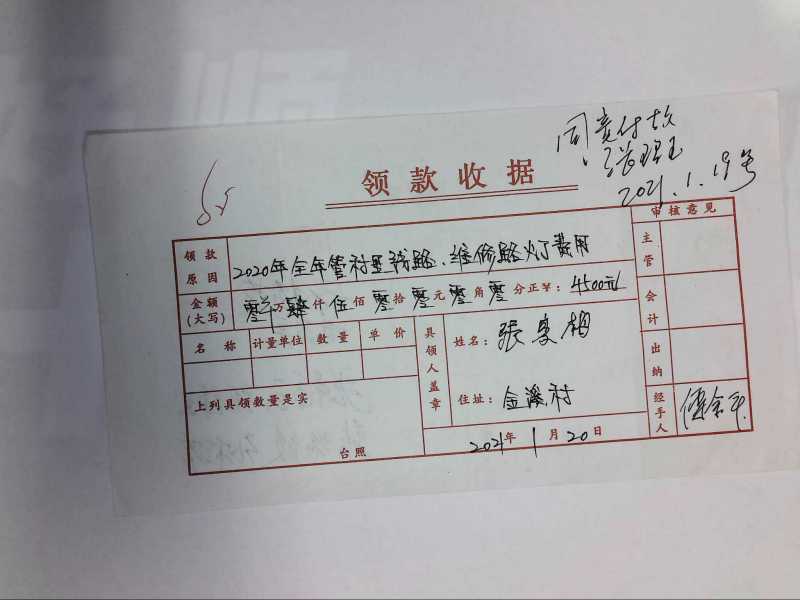 同意付款
2021.1.19号
65
领款收据
审核意见
领款原因 2020年全年管村里线路、维修路灯费用
主管
金额(大写) 零万肆仟伍佰零拾零元零角零分正¥：4500元
会计
名称 计量单位 数量 单价
具领人盖章
姓名：張
出纳
上列具领数量是实
住址：金溪村
经手人
台照
2021年1月20日